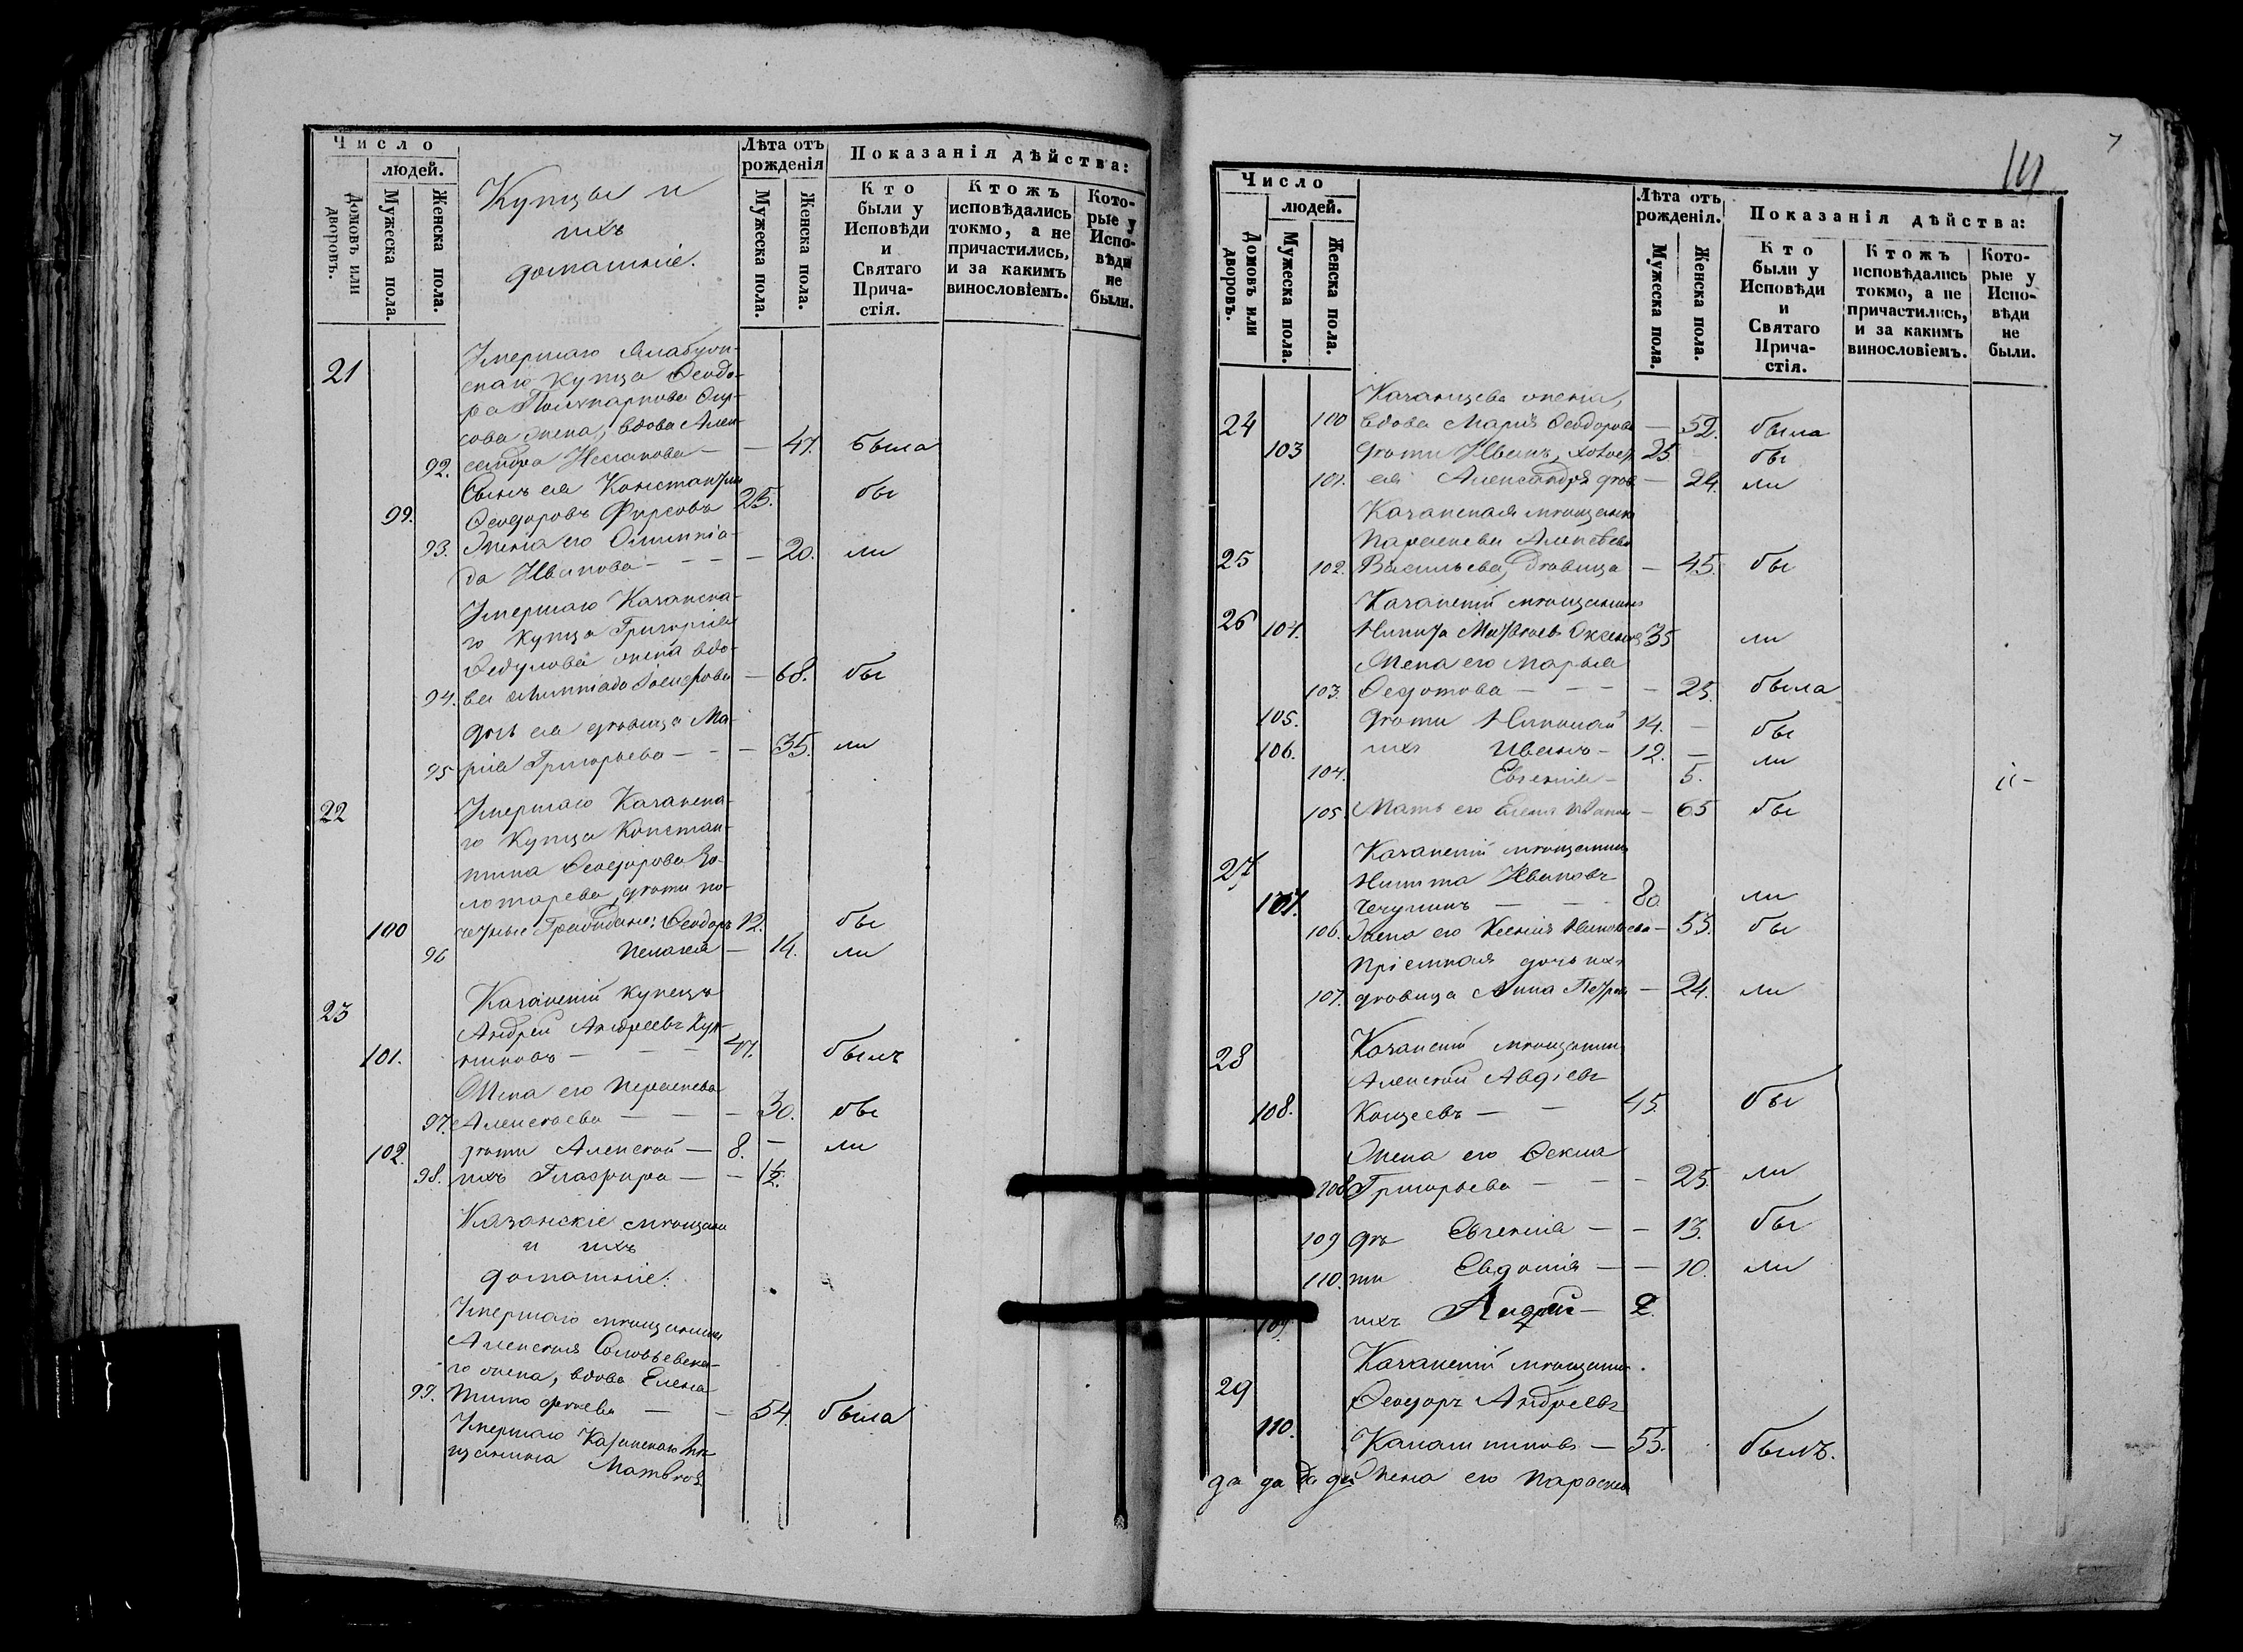 Число
людей.
Домовъ или дворовъ.
Мужеска пола.
Женска пола.
Купцы и
ихъ
домашніе.
Лѣта отъ рожденія
Мужеска пола.
Женска пола.
Показанія дѣйства:
Кто были у Исповѣди и Святаго Причастія.
Ктожъ исповѣдались токмо, а не причастились, и за какимъ винословіемъ.
Которые у Исповѣди не были.
21 Умершаго
скаго купца Ѳеодо-
ра Поликарпова Фир-
сова жена, вдова Алек-
92. сандра — — 47. была
Сынъ ея Константинъ
99. Ѳеодоровъ Фирсовъ 25. бы
93. Жена его Олимпіа-
да Иванова — — — — 20. ли
Умершаго Казанска-
го купца Григорія
Федулова жена вдо-
94. ва Олимпіада — 68. бы
дочь ея дѣвица Ма-
95 рія Григорьева — — — 35. ли
22 Умершаго Казанска-
го Купца Констан-
тина Ѳеодорова Зо-
лотарева, дѣти по-
100 четные Граждане: Ѳеодоръ 12. бы
96 Пелагея — 14. ли
23 Казанскій купецъ
Андрей Андреевъ
101. — — — 47. былъ
Жена его Параскева
97. Алексѣева — — — 30. бы
102. дѣти Алексѣй — 8. — ли
98. ихъ Глафира — — 1½.
Казанскіе мѣщане
и ихъ
домашніе.
Умершаго мѣщанина
Алексѣя Соловьевска-
го жена, вдова Елена
99. Тимофѣева — — 54. была
Умершаго Казанскаго мѣ-
щанина Матвѣя
7
Число
людей.
Домовъ или дворовъ.
Мужеска пола.
Женска пола.
Лѣта отъ рожденія.
Мужеска пола.
Женска пола.
Показанія дѣйства:
Кто были у Исповѣди и Святаго Причастія.
Ктожъ исповѣдались токмо, а не причастились, и за какимъ винословіемъ.
Которые у Исповѣди не были.
Казанцева жена,
24 100 вдова Марія Ѳеодорова — 52. была
103 дѣти Иванъ, 25 бы
101. ея Александра — 24. ли
Казанская мѣщанка
Параскева Алексѣева
25 102. Васильева, дѣвица — 45. бы
Казанскій мѣщанинъ
26 104. Никита Матвѣевъ 35 ли
Жена его Марья
103. Ѳедотова — — — — 25. была
105. дѣти Николай 14. — бы
106. ихъ Иванъ — 12. — ли
104. Евгенія — 5.
105 Мать его Елена — 65 бы
Казанскій мѣщанинъ
27 Никита Ивановъ
107. Чечулинъ — — 80. ли
106. Жена его Ксенія — 53. бы
Пріемная дочь ихъ
107. дѣвица Анна Петрова — 24. ли
28 Казанскій мѣщанинъ
Алексѣй Авдіевъ
108. Кощеевъ — — 45. бы
Жена его Ѳекла
108 Григорьева — — — 25. ли
109 дѣ Евгенія — — 13. бы
110. ти Евдокія — — 10. ли
109. ихъ Андрей — 2.
Казанскій мѣщанинъ
29 Ѳеодоръ Андреевъ
110. Калашниковъ — 55. былъ.
Жена его Параскева